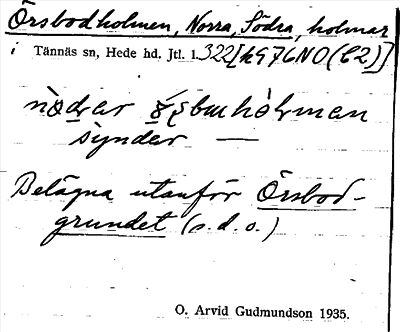 Örsbodholmen, Norra, Södra, holmar
i Tännäs sn, Hede hd, Jtl. l. 322[hG76NO(C2)]
synder —
Belägna utanför Örsbod-
grundet (s.d.o.)
O. Arvid Gudmundson 1935.